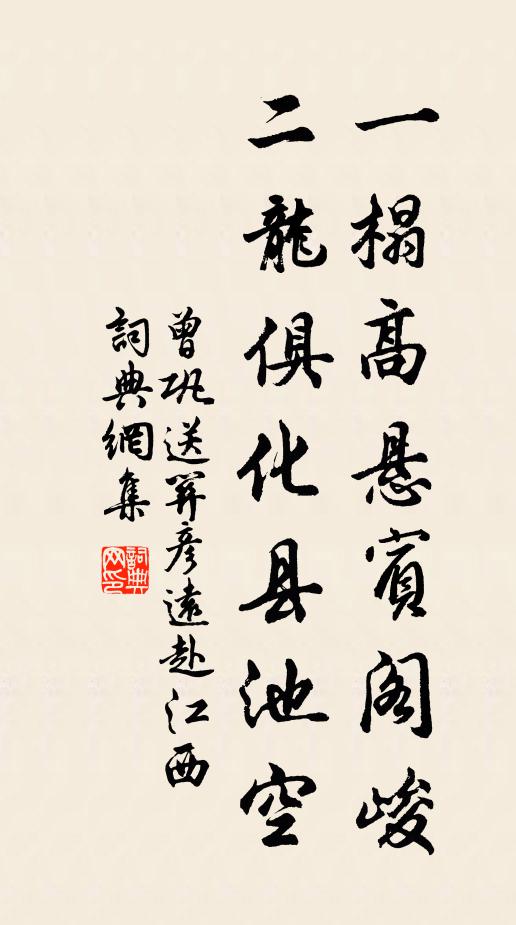 一榻高悬賓阁峻
二龍俱化县池空
曾巩送箅彦遠赴江西
詞典網集
詞典网印